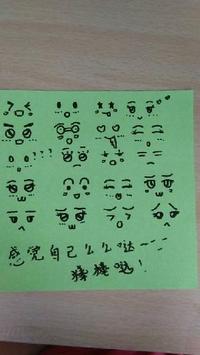 感觉自己么么哒~~~
棒棒哒!